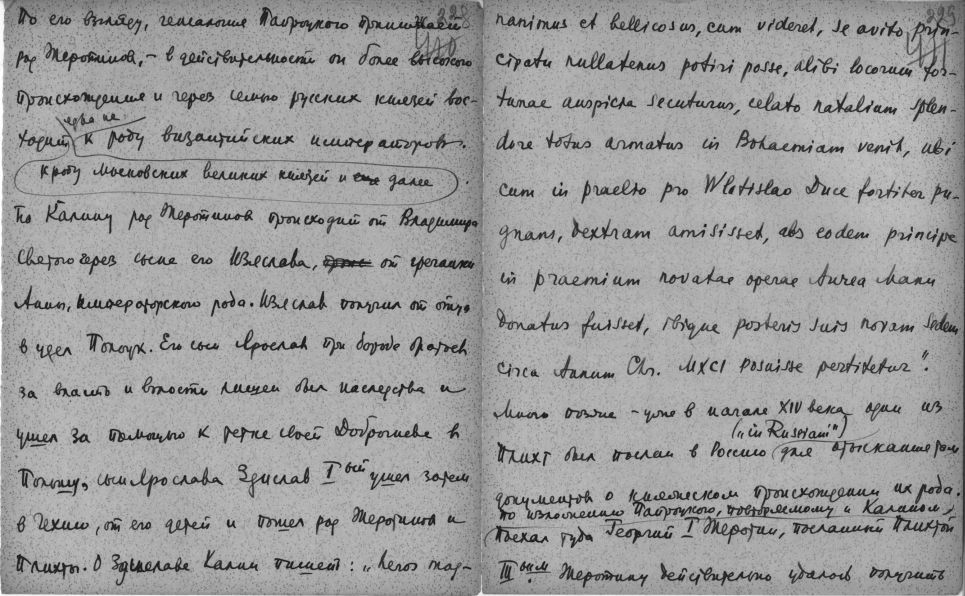 По его взгляду, генеалогия Папроцкого принижает
228
род Жеротинов, - в действительности он более высокого
происхождения и через семью русских князей вос-
едва не
ходит к роду византийских императоров.
к роду московских великих князей и еще далее
По Калину род Жеротинов происходит от Владимира
Святого через сына его Изяслава, от гречанки
Анны, императорского рода. Изяслав получил от отца
в удел Полоцк. Его сын Ярослав при борьбе братьев
за власть и волости лишен был наследства и
ушел за помощью к тетке своей Доброгневе в
Польшу, сын Ярослава Здислав Iый ушел затем
в Чехию, от его детей и пошел род Жеротинов и
Плихты. О Здиславе Калин пишет: "Leros mag-
229
nanimus et bellicosus, cum videret, se avito prin-
cipatu nullatenus potiri posse, alibi locorum for-
tunae auspicia secuturus, celato natalium splen-
dore totus armatus in Bohaemiam venit, ubi
cum in praelio pro Wlatislao Duce fortiter pu-
gnans, dextram amisisset, abs eodem principe
in praemium novatae operae Aurea Manu
donatus fuisset, ibique posteris suis novam sedem
circa Annum Chr. MXCI posuisse perhibetur".
Много позже - уже в начале XIV века один из
("in Russiam")
Плихт был послан в Россию для отыскания там
документов о княжеском происхождении их рода.
По изложению Папроцкого, повторяемому и Калином,
поехал туда Георгий I Жеротин, посланный Плихтой
IIIьим. Жеротину действительно удалось получить